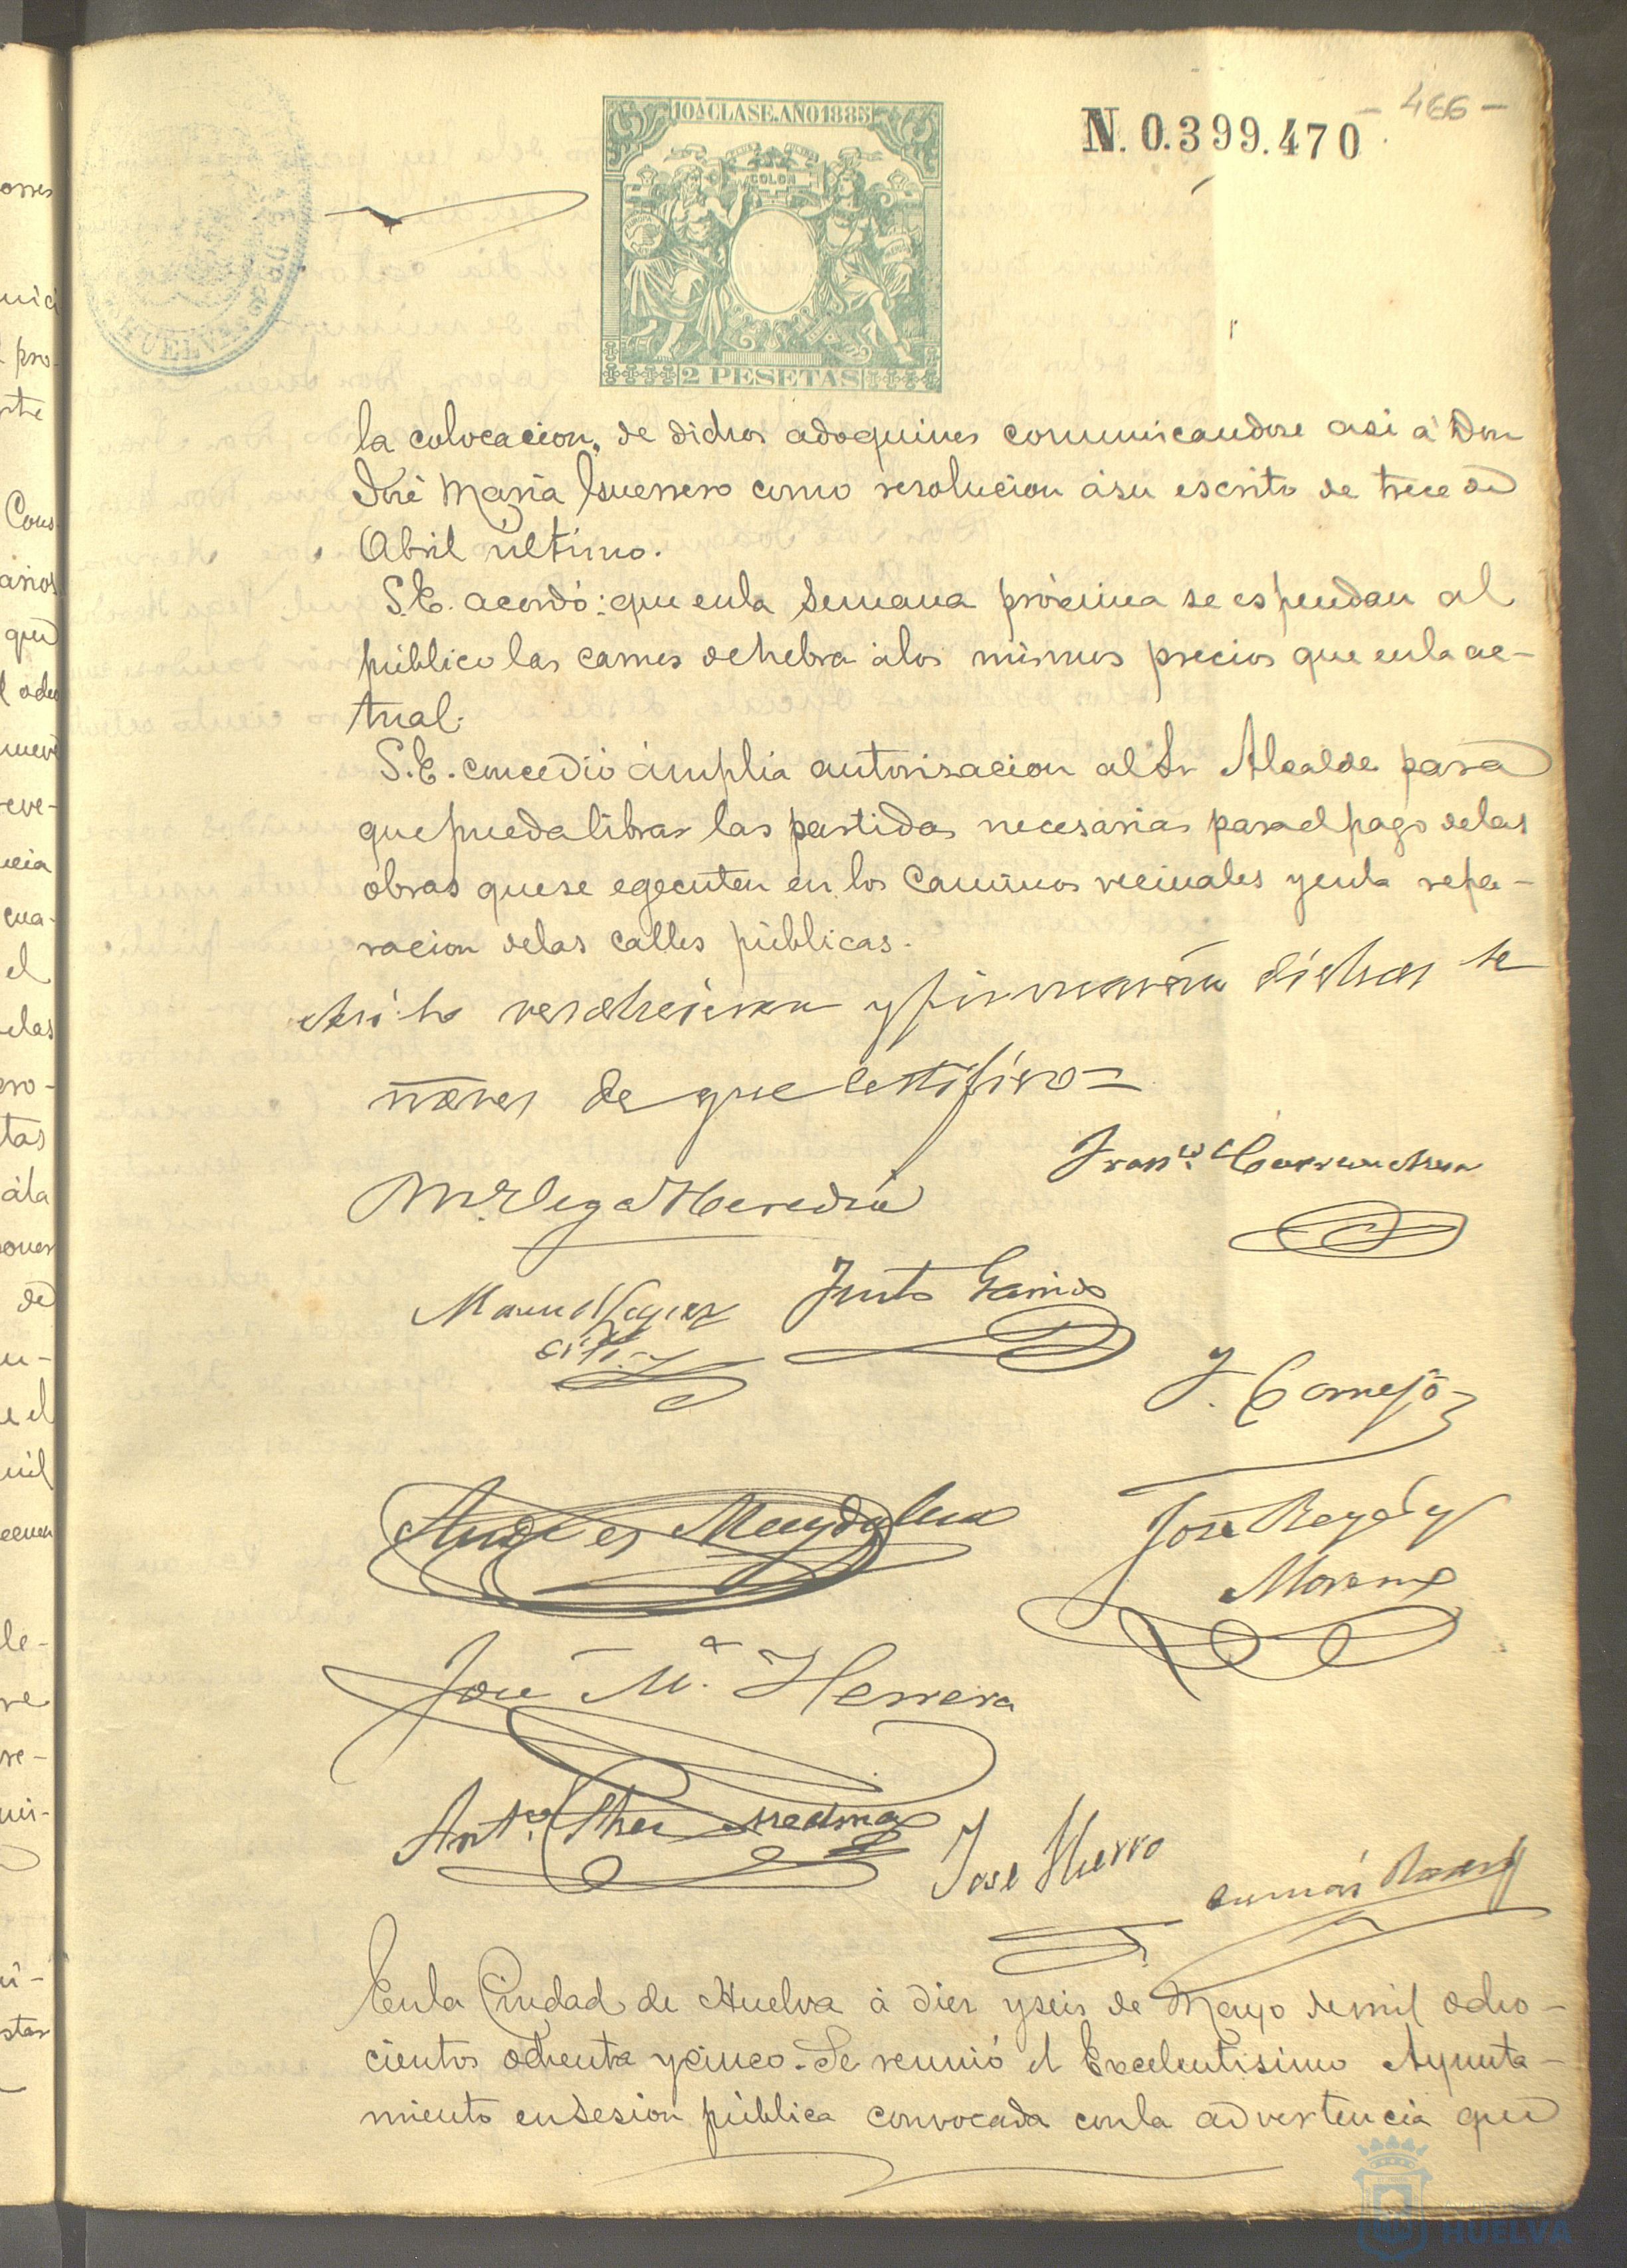 - 466 -
N. 0.399.470
10ª CLASE. AÑO 1885
COLON
2 PESETAS
HUELVA
la colocacion, de dichos adoquines comunicandose asi á Don
José Maria Guerrero como resolucion á su escrito de trece de
Abril último.
S.E. acordó: que en la Semana próxima se espendan al
público las carnes de hebra á los mismos precios que en la ac-
tual.
S.E. concedió ámplia autorisacion al Sr Alcalde para
que pueda librar las partidas necesarias para el pago de las
obras que se egecuten en los Caminos vecinales y en la repa-
racion de las calles públicas.
Asi lo y firmarán dichos Se
ñores de que certifico=
Franco
M. Vega Heredia
Manuel
Justo Garrido
J. Cornejo
Andres Magdalena
José
Moreno
José Mª. Herrera
Anto.
José Hierro
En la Ciudad de Huelva á diez y seis de Mayo de mil ocho-
cientos ochenta y cinco. Se reunió el Excelentisimo Ayunta-
miento en Sesion pública convocada con la advertencia que
HUELVA